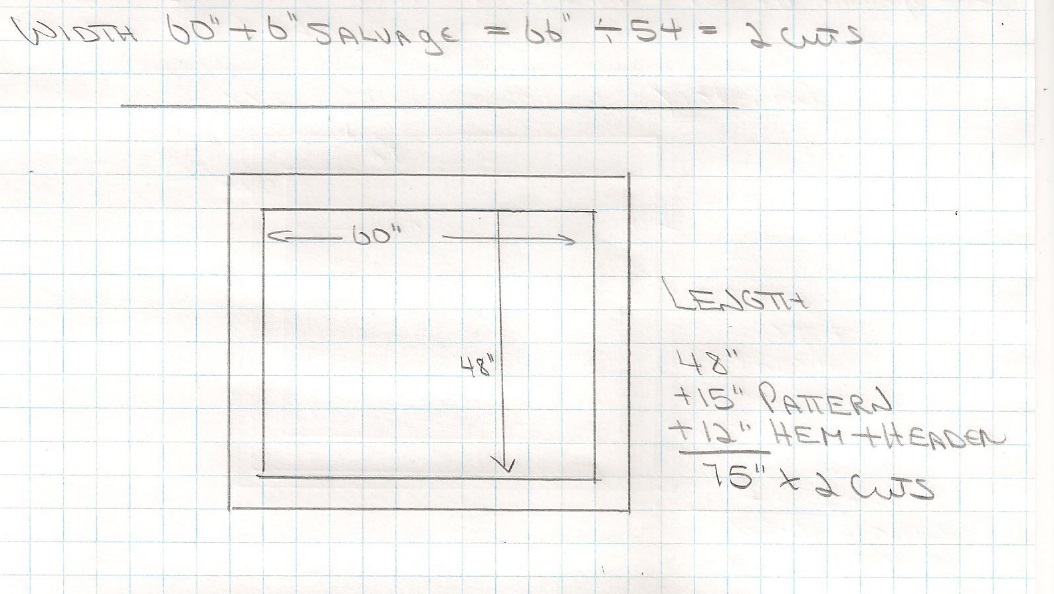 WIDTH 60" + 6" SALVAGE = 66" ÷ 54 = 2 CUTS
60"
48"
LENGTH
48"
+15" PATTERN
+12" HEM + HEADER
75" x 2 CUTS